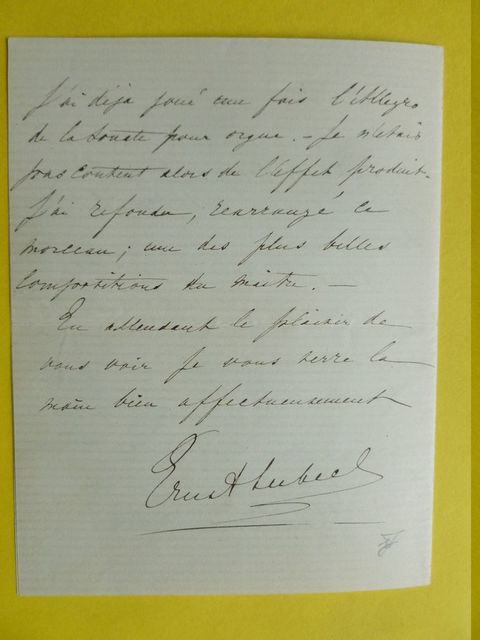 J'ai déja joué une fois l'Allegro
de la Sonate pour orgue. — Je n'étais
pas content alors de l'effet produit.
J'ai refondu, rearrangé ce
morceau; une des plus belles
Compositions du maître. —
En attendant le plaisir de
vous voir je vous serre la
main bien affectueusement
Ernst Lubeck